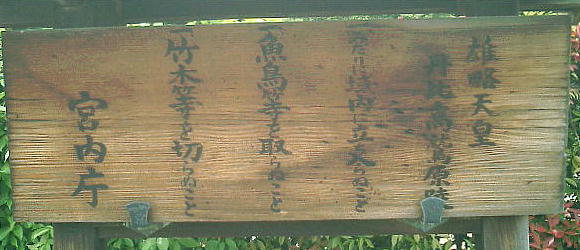 雄略天皇
丹比高鷲原陵
一、みだりに域内に立入らぬこと
一、魚鳥等を取らぬこと
一、竹木等を切らぬこと
宮内庁